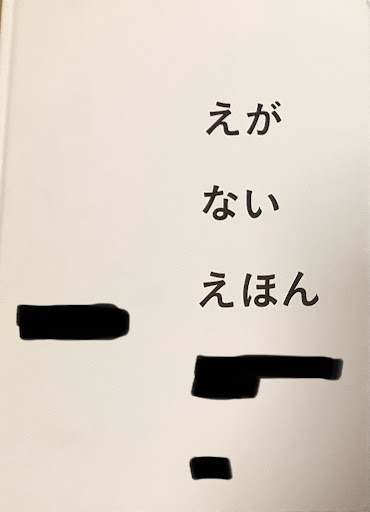 えが
ない
えほん